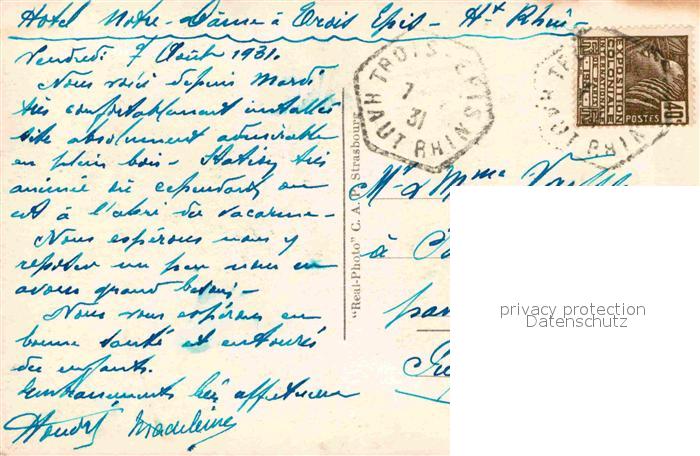 Hotel Notre-Dame à Trois Epis - Ht Rhin -
Vendredi 7 Août 1931.
Nous voici depuis Mardi
très confortablement installés
site absolument admirable
en plein bois - Station très
animée où cependant on
est à l'abri du vacarme -
Nous espérons nous y
reposer un peu nous en
avons grand besoin -
Nous vous espérons en
bonne santé et entourés
des enfants.
Embrassements bien affectueux
Madeleine
TROIS EPIS
HAUT RHIN
7
31
EXPOSITION
COLONIALE
INTERNATIONALE
POSTES
40c
TROIS
HAUT RHIN
"Real-Photo" C. A. P. Strasbourg
Mr & Mme
à
par
privacy protection
Datenschutz